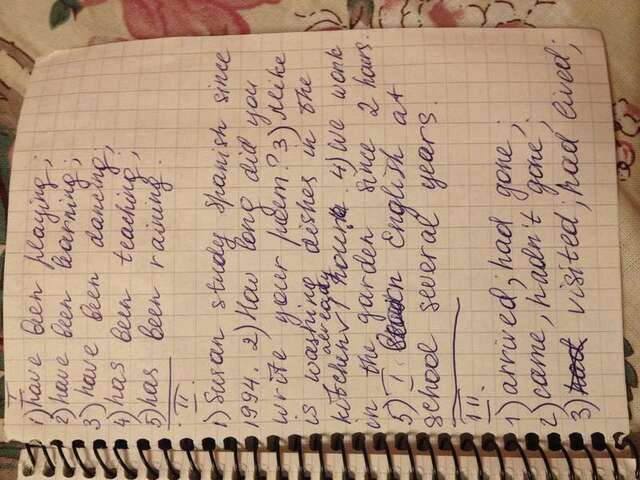 I
1) have been playing;
2) have been learning;
3) have been dancing;
4) has been teaching;
5) has been raining.
II.
1) Susan study Spanish since
1994. 2) How long did you
write your poem? 3) Mike
is washing dishes in the
already
kitchen 1 hour. 4) We work
in the garden since 2 hours.
5) I English at
school several years.
III.
1) arrived; had gone;
2) came, hadn't gone;
3) visited; had lived;